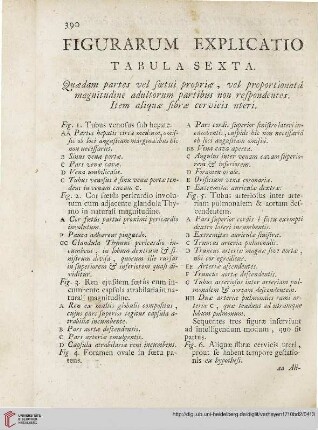 390
FIGURARUM EXPLICATIO
TABULA SEXTA.
Quædam partes vel fœtui propriæ, vel proportionatâ
magnitudine adultorum partibus non respondentes.
Item aliquæ fibræ cervicis uteri.
Fig. 1. Tubus venosus sub hepate.
AA Partes hepatis circa
ob loci angustiam marginalibus hic
non necessariis.
B Sinus venæ portæ.
C Pars venæ cavæ.
D Vena umbilicalis.
E Tubus venosus à sinu venæ portæ tendens
in venam cavam C.
Fig. 2. Cor fœtûs pericardio involutum
cum adjacente glandula Thymo
in naturali magnitudine.
A Cor fœtûs partui proximi pericardio
involutum.
B Pauca adhærens pinguedo.
CC Glandula Thymus pericardio incumbens,
in lobum dextrum & sinistrum
divisa, quorum ille rursus
in superiorem & inferiorem quasi dividitur.
Fig. 3. Ren ejusdem fœtûs cum incumbente
capsula atrabilaria in naturali
magnitudine.
A Ren ex multis globulis compositus,
cujus pars superior tegitur capsula atrabilaria
incumbente.
B Pars aortæ descendentis.
C Pars arteriæ emulgentis.
D Capsula atrabilaria reni incumbens.
Fig. 4. Foramen ovale in fœtu patens.
A Pars cordis superior
ob loci angustiam omissis.
BB Vena cava aperta.
C Angulus inter venam cavam superiorem
& inferiorem.
D Foramen ovale.
E Orificium venæ coronariæ.
F Extremitas auriculæ dextræ.
Fig. 5. Tubus arteriosus inter arteriam
pulmonalem & aortam descendentem.
A Pars superior cordis è fœtu exempti
dextro lateri incumbentis.
B Extremitas auriculæ sinistræ.
C Truncus arteriæ pulmonalis.
D Truncus arteriæ magnæ sive aortæ,
ubi cor egreditur.
EE Arteriæ ascendentes.
F Truncus aortæ descendentis.
G Tubus arteriosus inter arteriam pulmonalem
& aortam descendentem.
HH Duæ arteriæ pulmonalis ramiores
C, quæ tendunt ad utrumque
lobum pulmonum.
Sequentes tres figuræ inserviunt
ad intelligendum motum, quo fit
partus.
Fig. 6. Aliquæ fibræ cervicis uteri,
prout se habent tempore gestationis
ex hypothesi.
aa Ali-
http://digi.ub.uni-heidelberg.de/diglit/verheyen1710bd2/0413